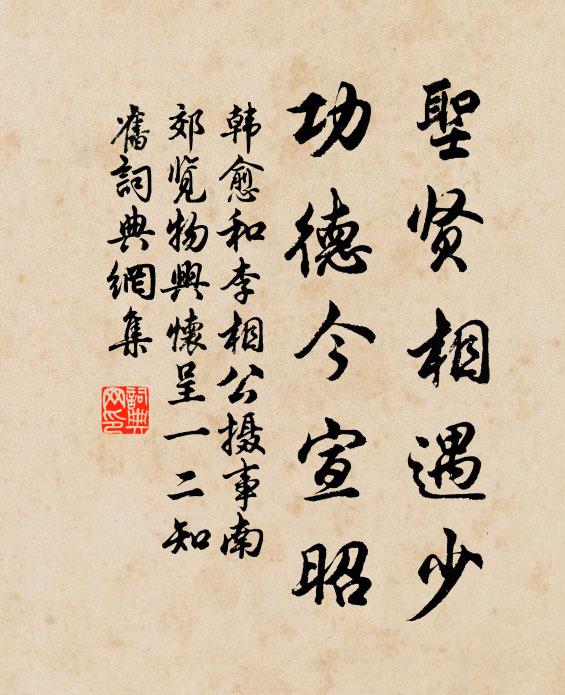 聖贤相遇少
功德今宣昭
韩愈和李相公摄事南
郊览物興懷呈一二知
舊詞典網集
詞典网印